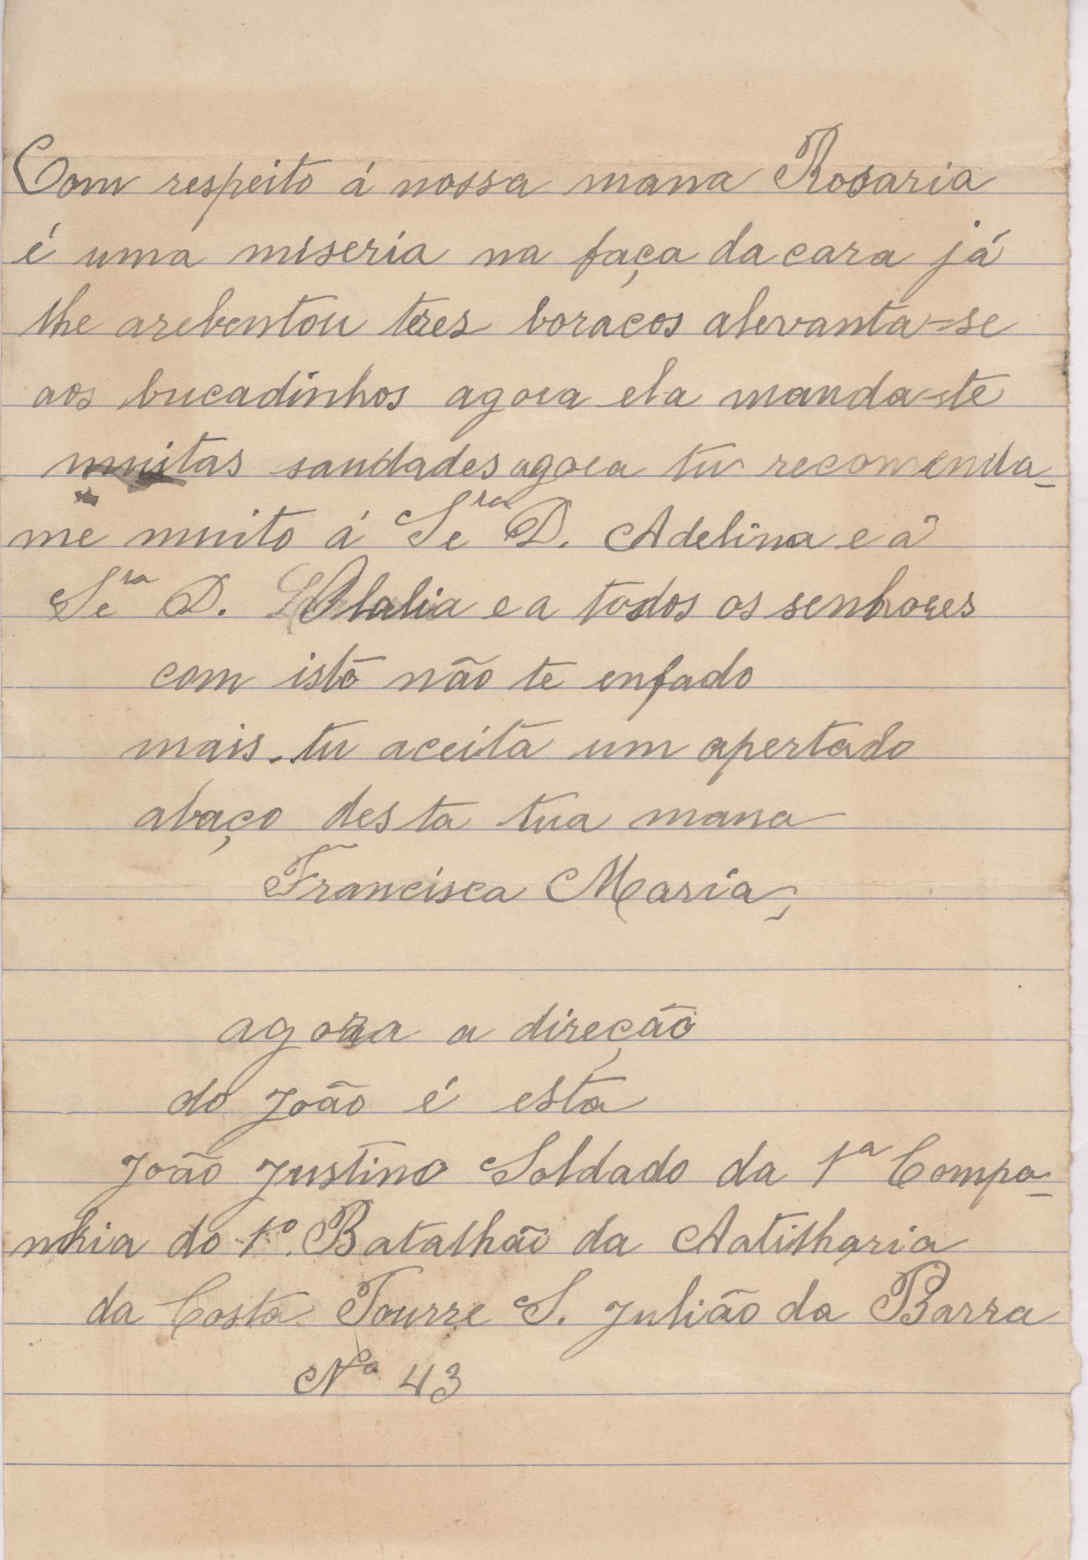 Com respeito á nossa mana Rosaria
é uma miseria na faça da cara já
lhe arebentou teres boracos alevanta-se
aos bucadinhos agora ela manda-te
muitas saudades agora tu recomenda-
me muito á Se^ra D. Adelina e á
Se^ra D. Olalia e a todos os senhores
com isto não te enfado
mais. tu aceita um apertado
abaço desta tua mana
Francisca Maria
agora a direção
do João é esta
João Justino Soldado da 1ª Compa-
nhia do 1º. Batalhão da Aatilharia
da Costa Tourre S. Julião da Barra
Nº 43